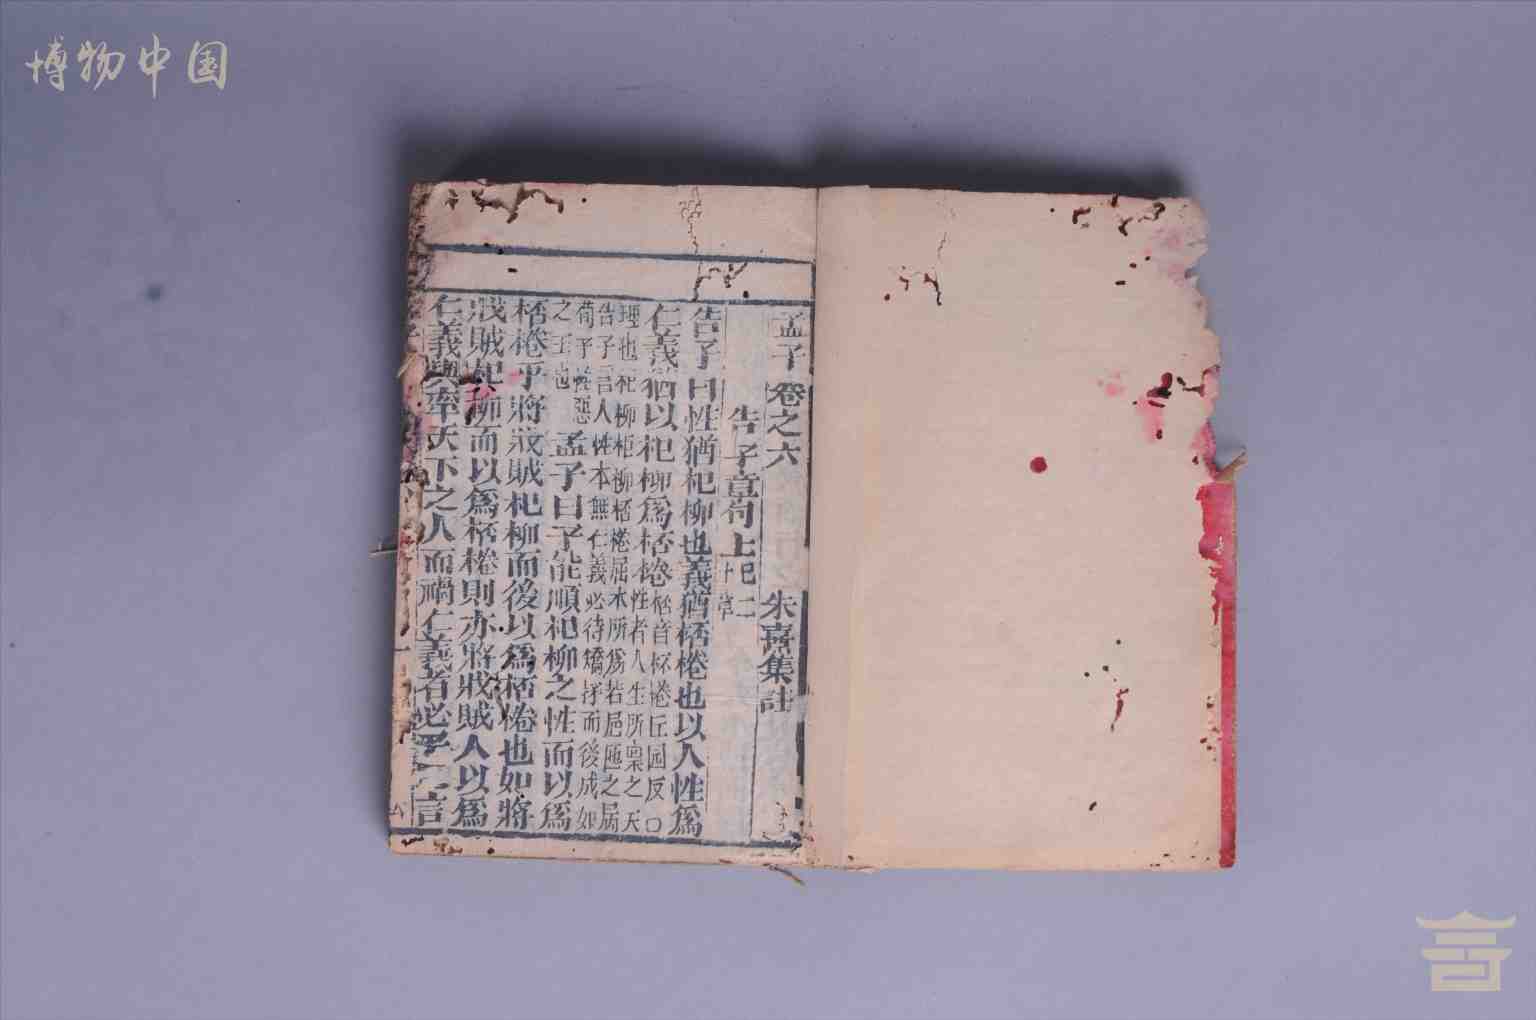 博物中国
孟子卷之六 朱熹集註
告子章句上 凡二十章
告子曰性猶杞柳也義猶桮棬也以人性爲
仁義猶以杞柳爲桮棬桮音杯棬丘圓反〇
理也杞柳柜柳桮棬屈木所爲若巵匜之屬
告子言人性本無仁義必待矯揉而後成如
荀子性惡
之 也 孟子曰子能順杞柳之性而以爲
桮棬乎將戕賊杞柳而後以爲桮棬也如將
戕賊杞柳而以爲桮棬則亦將戕賊人以爲
仁義與率天下之人而禍仁義者必子之言